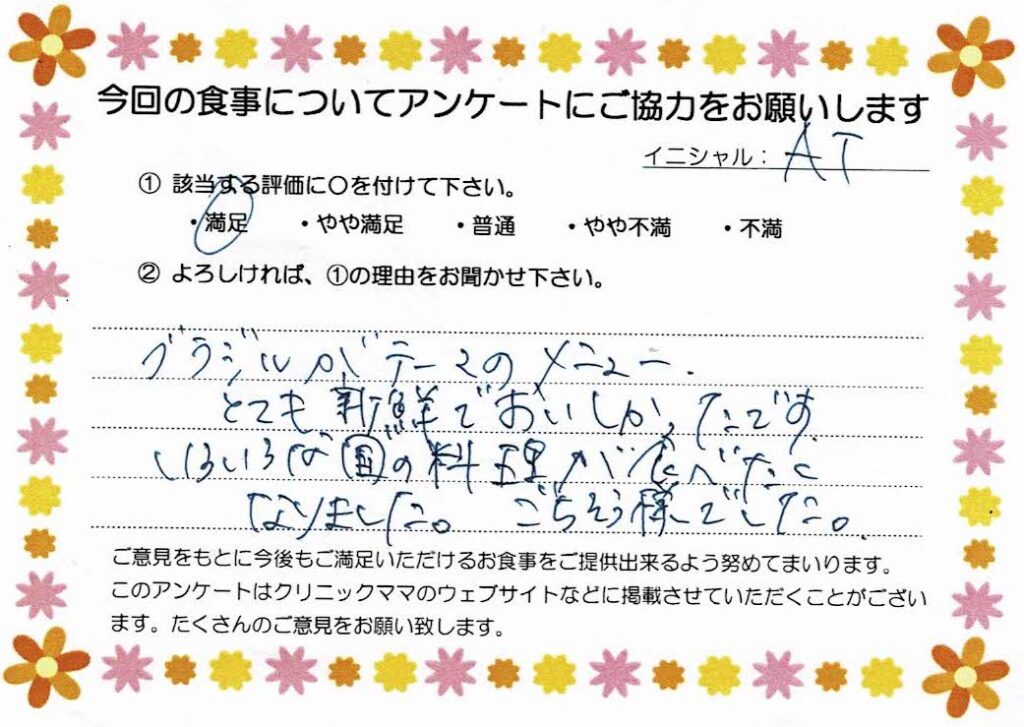 今回の食事についてアンケートにご協力をお願いします
イニシャル： AT
① 該当する評価に〇を付けて下さい。
・満足 ・やや満足 ・普通 ・やや不満 ・不満
② よろしければ、①の理由をお聞かせ下さい。
ブラジルがテーマのメニュー.
とても新鮮でおいしかったです
いろいろな国の料理が食べたく
なりました。 ごちそう様でした。
ご意見をもとに今後もご満足いただけるお食事をご提供出来るよう努めてまいります。
このアンケートはクリニックママのウェブサイトなどに掲載させていただくことがござい
ます。たくさんのご意見をお願い致します。